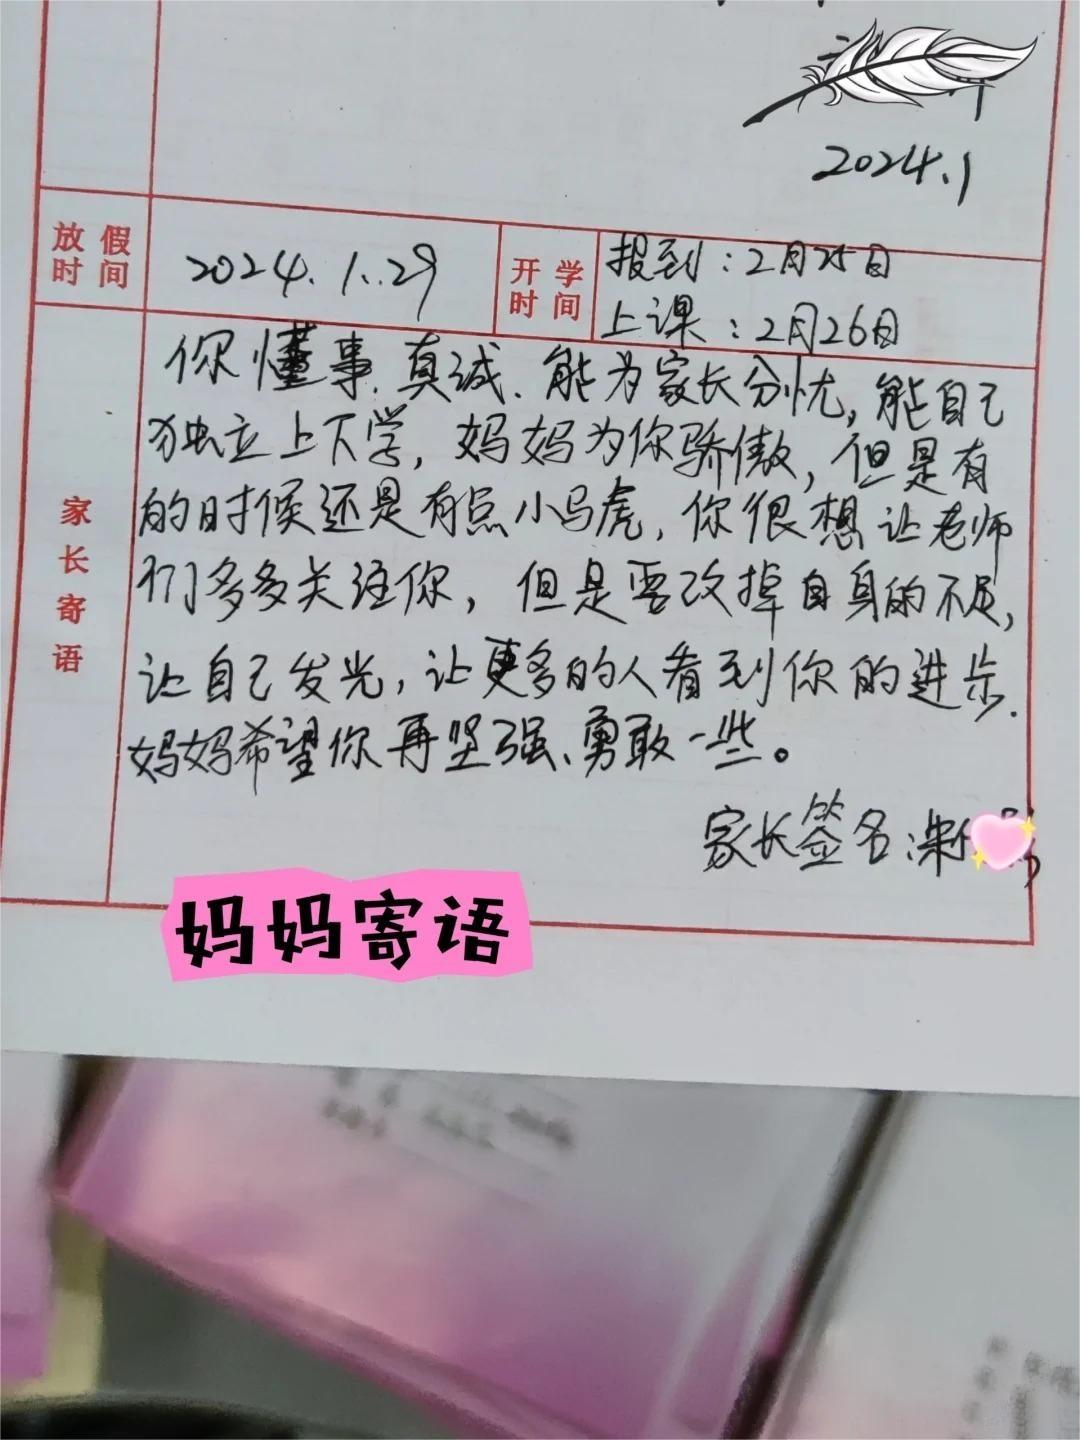 2024.1
放假时间
2024.1.29
开学时间
报到：2月25日
上课：2月26日
家长寄语
你懂事、真诚、能为家长分忧，能自己
独立上下学，妈妈为你骄傲，但是有
的时候还是有点小马虎，你很想让老师
们多多关注你，但是要改掉自身的不足，
让自己发光，让更多的人看到你的进步.
妈妈希望你再坚强、勇敢一些。
家长签名：朱
妈妈寄语